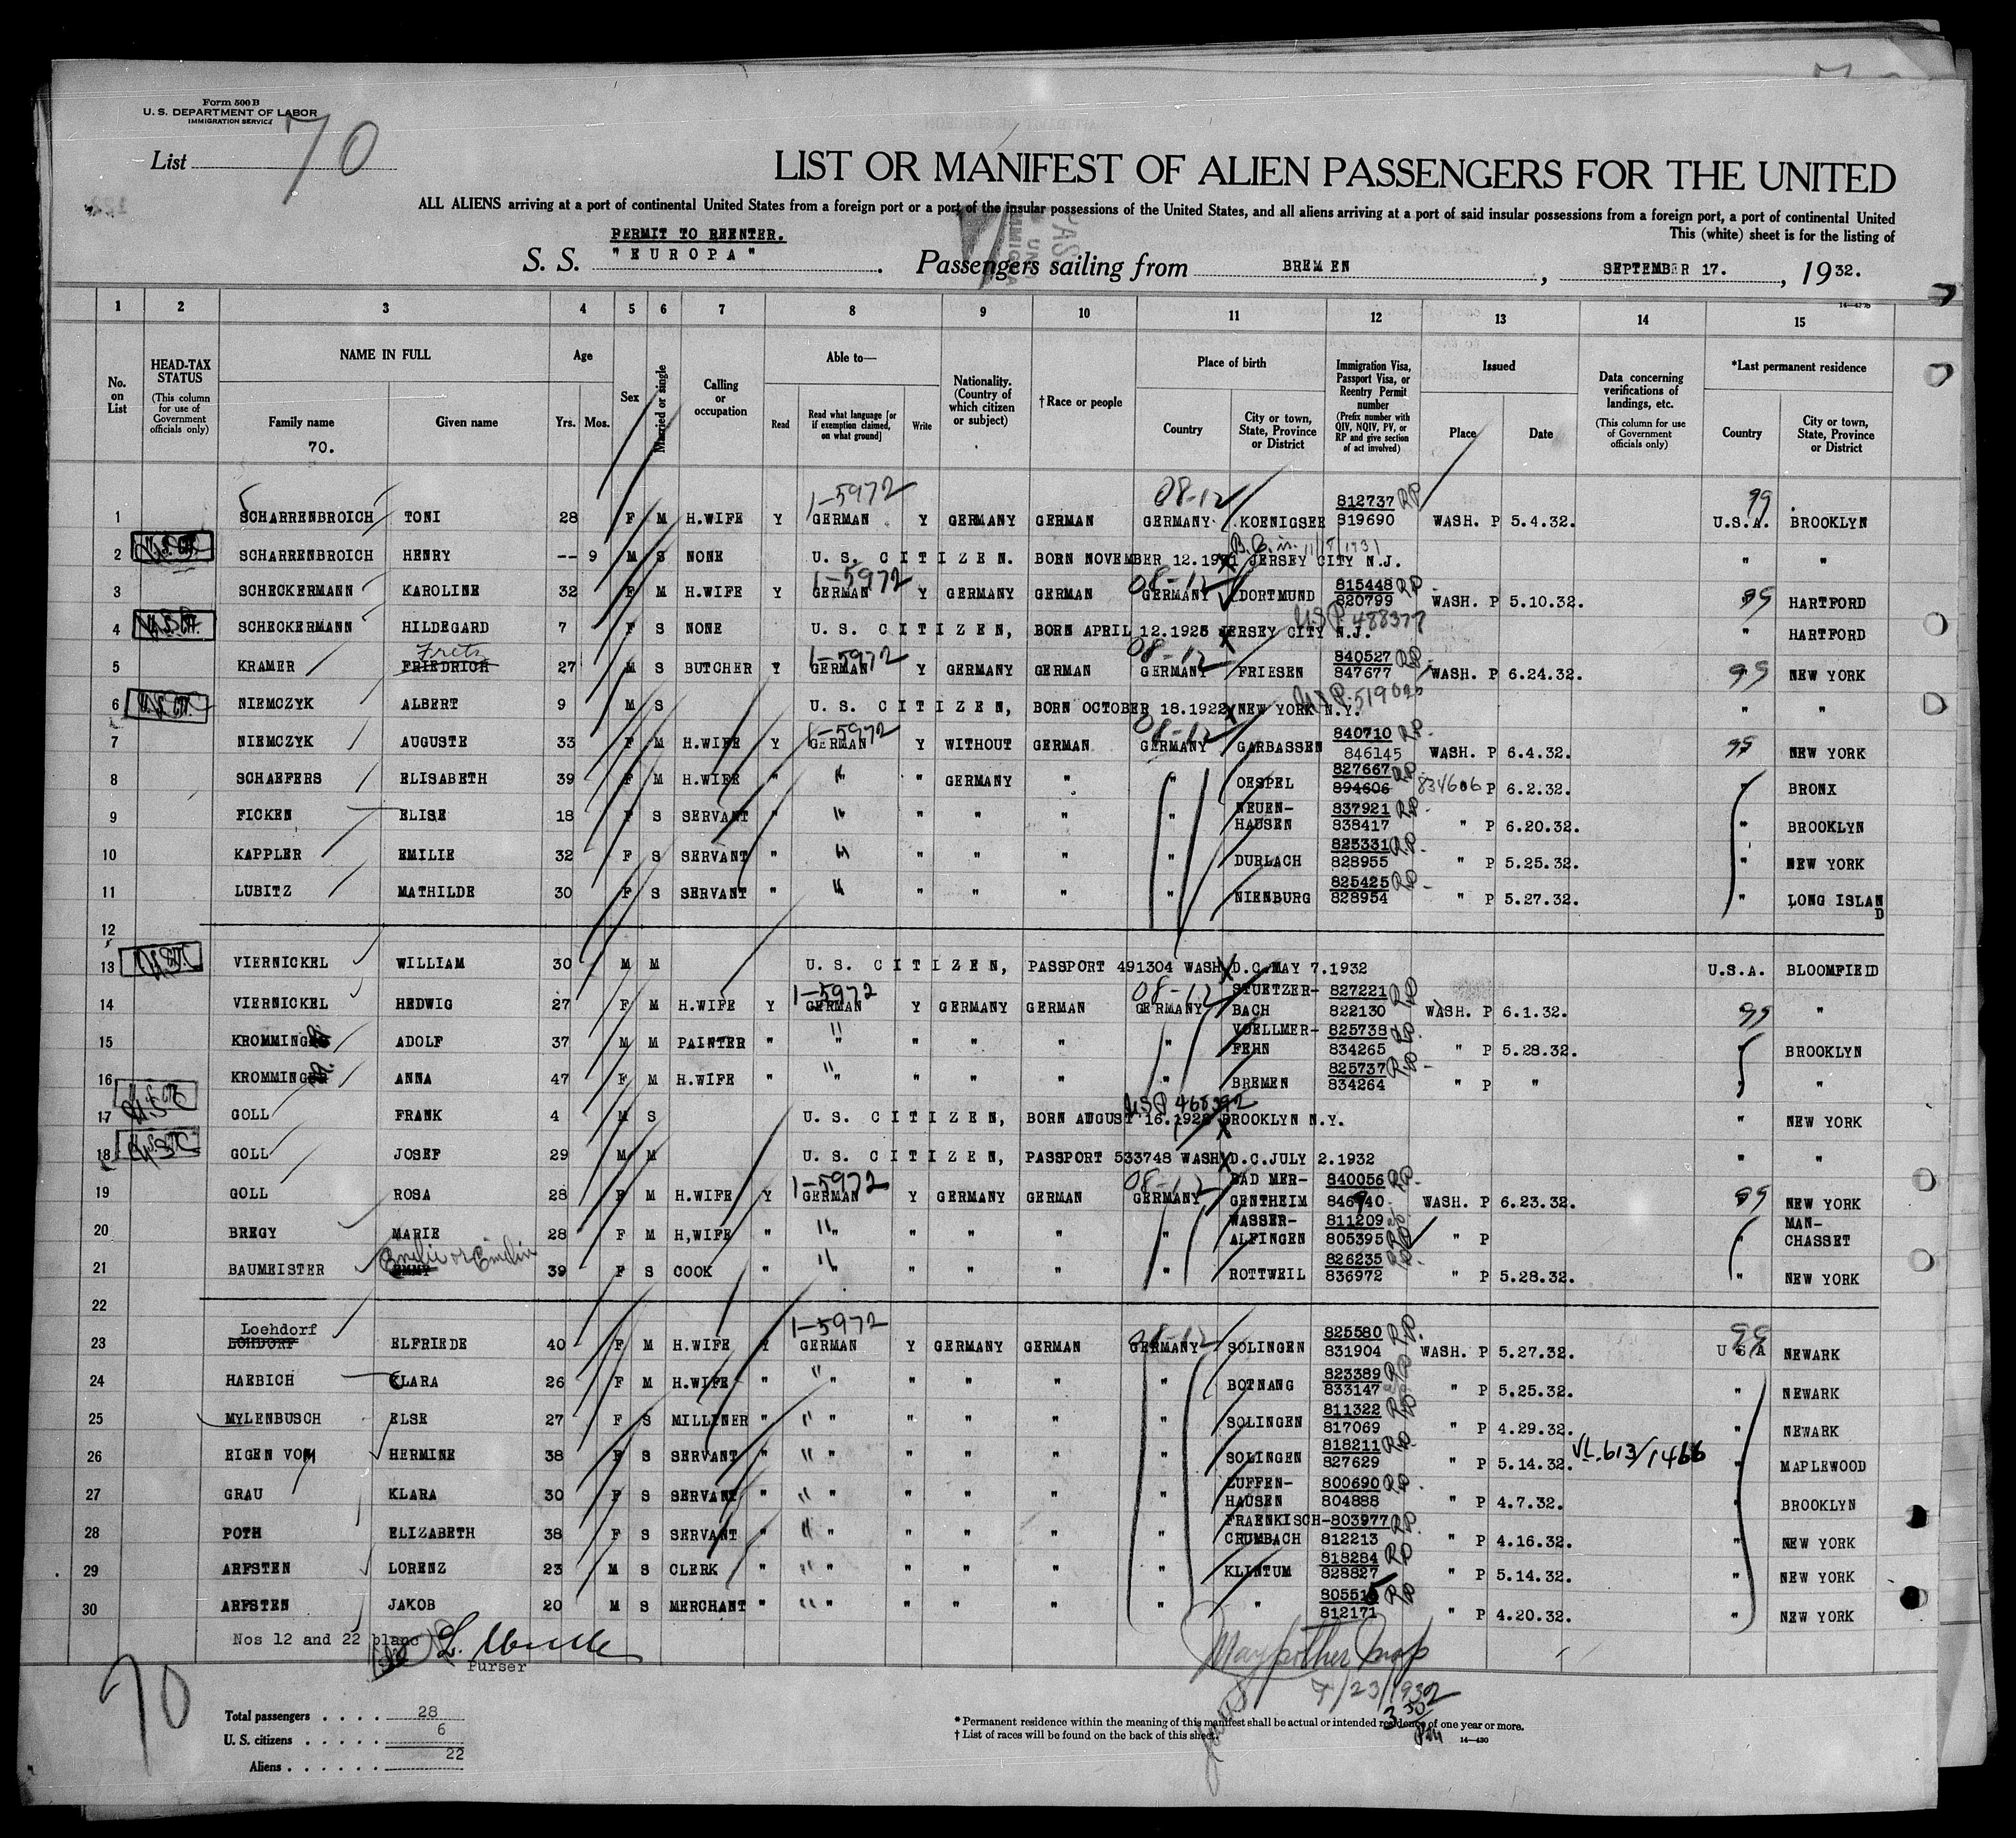 Form 500 B
U. S. DEPARTMENT OF LABOR
IMMIGRATION SERVICE
List 70
LIST OR MANIFEST OF ALIEN PASSENGERS FOR THE UNITED
ALL ALIENS arriving at a port of continental United States from a foreign port or a port of the insular possessions of the United States, and all aliens arriving at a port of said insular possessions from a foreign port, a port of continental United
This (white) sheet is for the listing of
PERMIT TO REENTER.
S. S. "EUROPA" . Passengers sailing from BREMEN , SEPTEMBER 17. , 1932.
1 2 3 4 5 6 7 8 9 10 11 12 13 14 15
No. on List
HEAD-TAX STATUS (This column for use of Government officials only)
NAME IN FULL Family name Given name
70.
Age Yrs. Mos.
Sex
Married or single
Calling or occupation
Able to— Read Read what language [or if exemption claimed, on what ground] Write
Nationality. (Country of which citizen or subject)
† Race or people
Place of birth Country City or town, State, Province or District
Immigration Visa, Passport Visa, or Reentry Permit number (Prefix number with QIV, NQIV, PV, or RP and give section of act involved)
Issued Place Date
Data concerning verifications of landings, etc. (This column for use of Government officials only)
*Last permanent residence Country City or town, State, Province or District
1 SCHARRENBROICH TONI 28 F M H.WIFE Y 1-5972 GERMAN Y GERMANY GERMAN 08-12 GERMANY KOENIGSEE 812737 RP 819690 WASH. P 5.4.32. 99 U.S.A. BROOKLYN
2 SCHARRENBROICH HENRY -- 9 M S NONE U. S. CITIZEN. BORN NOVEMBER 12.1931 JERSEY CITY N.J. " "
3 SCHECKERMANN KAROLINE 32 F M H.WIFE Y 1-5972 GERMAN Y GERMANY GERMAN 08-12 GERMANY DORTMUND 815448 RP 820799 WASH. P 5.10.32. 99 HARTFORD
4 SCHECKERMANN HILDEGARD 7 F S NONE U. S. CITIZEN, BORN APRIL 12.1925 JERSEY CITY N.J. USP 488377 " HARTFORD
5 KRAMER FRIEDRICH Fritz 27 M S BUTCHER Y 1-5972 GERMAN Y GERMANY GERMAN 08-12 GERMANY FRIESEN 840527 RP 847677 WASH. P 6.24.32. 99 NEW YORK
6 NIEMCZYK ALBERT 9 M S U. S. CITIZEN, BORN OCTOBER 18.1922 NEW YORK N.Y. " "
7 NIEMCZYK AUGUSTE 33 F M H.WIFE Y 1-5972 GERMAN Y WITHOUT GERMAN 08-12 GERMANY GARBASSEN 840710 RP 846145 WASH. P 6.4.32. 99 NEW YORK
8 SCHAEFERS ELISABETH 39 F M H.WIFE " " " GERMANY " " OESPEL 827667 RP 894606 834606 P 6.2.32. " BRONX
9 FICKEN ELISE 18 F S SERVANT " " " " " " NEUEN-HAUSEN 837921 RP 838417 " P 6.20.32. " BROOKLYN
10 KAPPLER EMILIE 32 F S SERVANT " " " " " " DURLACH 825331 RP 828955 " P 5.25.32. " NEW YORK
11 LUBITZ MATHILDE 30 F S SERVANT " " " " " " NIENBURG 825425 RP 828954 " P 5.27.32. " LONG ISLAND
12
13 VIERNICKEL WILLIAM 30 M M U. S. CITIZEN, PASSPORT 491304 WASH D.C. MAY 7.1932 U.S.A. BLOOMFIELD
14 VIERNICKEL HEDWIG 27 F M H.WIFE Y 1-5972 GERMAN Y GERMANY GERMAN 08-12 GERMANY STUETZER-BACH 827221 RP 822130 WASH. P 6.1.32. 99 "
15 KROMMINGA ADOLF 37 M M PAINTER " " " " " " VOELLMER-FEHN 825738 RP 834265 " P 5.28.32. " BROOKLYN
16 KROMMINGA ANNA 47 F M H.WIFE " " " " " " BREMEN 825737 RP 834264 " P " " "
17 GOLL FRANK 4 M S U. S. CITIZEN, BORN AUGUST 16.1928 BROOKLYN N.Y. USP 468392 " NEW YORK
18 GOLL JOSEF 29 M M U. S. CITIZEN, PASSPORT 533748 WASH D.C. JULY 2.1932 " "
19 GOLL ROSA 28 F M H.WIFE Y 1-5972 GERMAN Y GERMANY GERMAN 08-12 GERMANY BAD MER-GENTHEIM 840056 RP 846940 WASH. P 6.23.32. 99 NEW YORK
20 BREGY MARIE 28 F M H,WIFE " " " " " " WASSER-ALFINGEN 811209 805395 RP " P " MAN-CHASSET
21 BAUMEISTER EMMY Emilie or Emilie 39 F S COOK " " " " " " ROTTWEIL 826235 RP 836972 " P 5.28.32. " NEW YORK
22
23 LOHDORF Loehdorf ELFRIEDE 40 F M H.WIFE Y 1-5972 GERMAN Y GERMANY GERMAN 08-12 GERMANY SOLINGEN 825580 RP 831904 WASH. P 5.27.32. 99 U S A NEWARK
24 HAEBICH KLARA 26 F M H.WIFE " " " " " " BOTNANG 823389 RP 833147 " P 5.25.32. " NEWARK
25 MYLENBUSCH ELSE 27 F S MILLINER " " " " " " SOLINGEN 811322 RP 817069 " P 4.29.32. " NEWARK
26 EIGEN VOM HERMINE 38 F S SERVANT " " " " " " SOLINGEN 818211 RP 827629 " P 5.14.32. VL.613/1466 " MAPLEWOOD
27 GRAU KLARA 30 F S SERVANT " " " " " " ZUFFEN-HAUSEN 800690 RP 804888 " P 4.7.32. " BROOKLYN
28 POTH ELIZABETH 38 F S SERVANT " " " " " " FRAENKISCH-CRUMBACH 803977 RP 812213 " P 4.16.32. " NEW YORK
29 ARFSTEN LORENZ 23 M S CLERK " " " " " " KLINTUM 818284 RP 828827 " P 5.14.32. " NEW YORK
30 ARFSTEN JAKOB 20 M S MERCHANT " " " " " " " 805515 RP 812171 " P 4.20.32. " NEW YORK
Nos 12 and 22 blanc
Purser
70
Total passengers . . . . 28
U. S. citizens . . . . . 6
Aliens . . . . . . 22
/23/1932
3 50 PM
* Permanent residence within the meaning of this manifest shall be actual or intended residence of one year or more.
† List of races will be found on the back of this sheet.
14—430